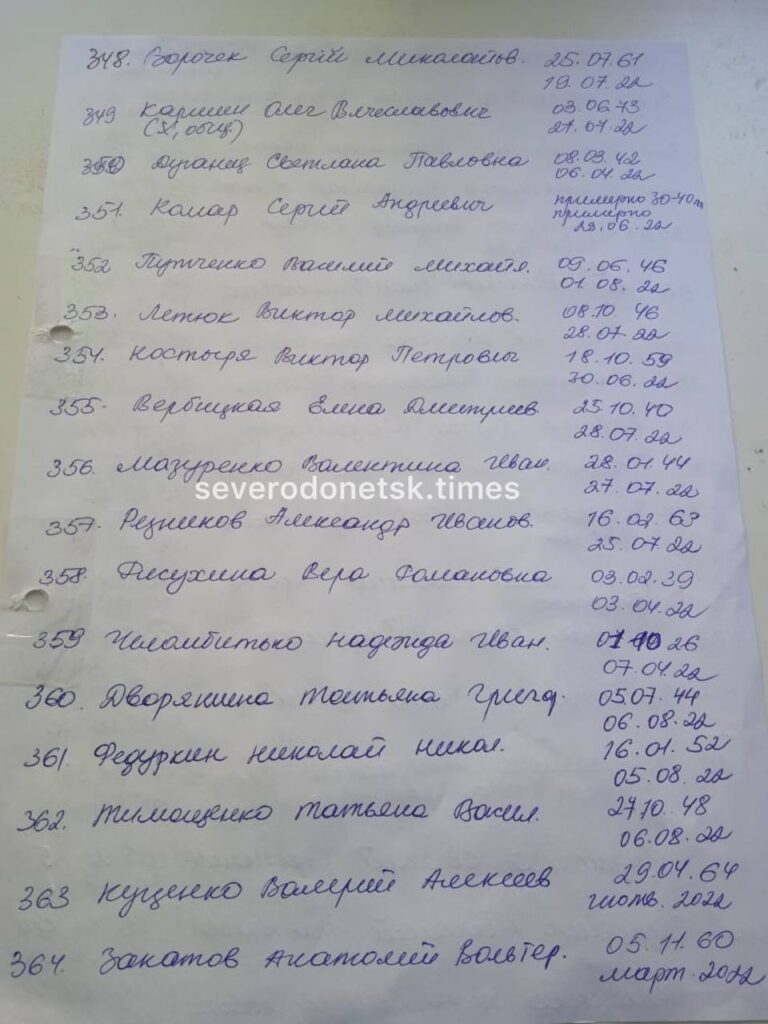 348. Борочек Сергій Миколайов. 25.07.61
19.07.22
349 Каршен Олег Вячеславович 03.06.73
(X, общ) 27.07.22
350 Луганец Светлана Павловна 08.09.42
06.04.22
351. Комар Сергий Андреевич примерно 30-40л
примерно
29.06.22
352 Путченко Василий Михайл. 09.06.46
01.08.22
353. Летюк Виктор Михайлов. 08.10.46
28.07.22
354. Костыря Виктор Петрович 18.10.59
30.06.22
355. Вербицкая Елена Дмитриев. 25.10.40
28.07.22
356. Мазуренко Валентина Иван. 28.01.44
severodonetsk.times
27.07.22
357. Резников Александр Иванов. 16.02.63
25.07.22
358. Фисухина Вера Романовна 03.02.39
03.04.22
359 Челомбитько Надежда Иван. 26
07.04.22
360. Дворянина Татьяна Григор. 05.07.44
06.08.22
361. Федуркин Николай Никол. 16.01.52
05.08.22
362. Тимощенко Татьяна Васил. 27.10.48
06.08.22
363 Куценко Валерий Алексеев 29.04.64
2022
364. Закатов Анатолий Вальтер. 05.11.60
март 2022